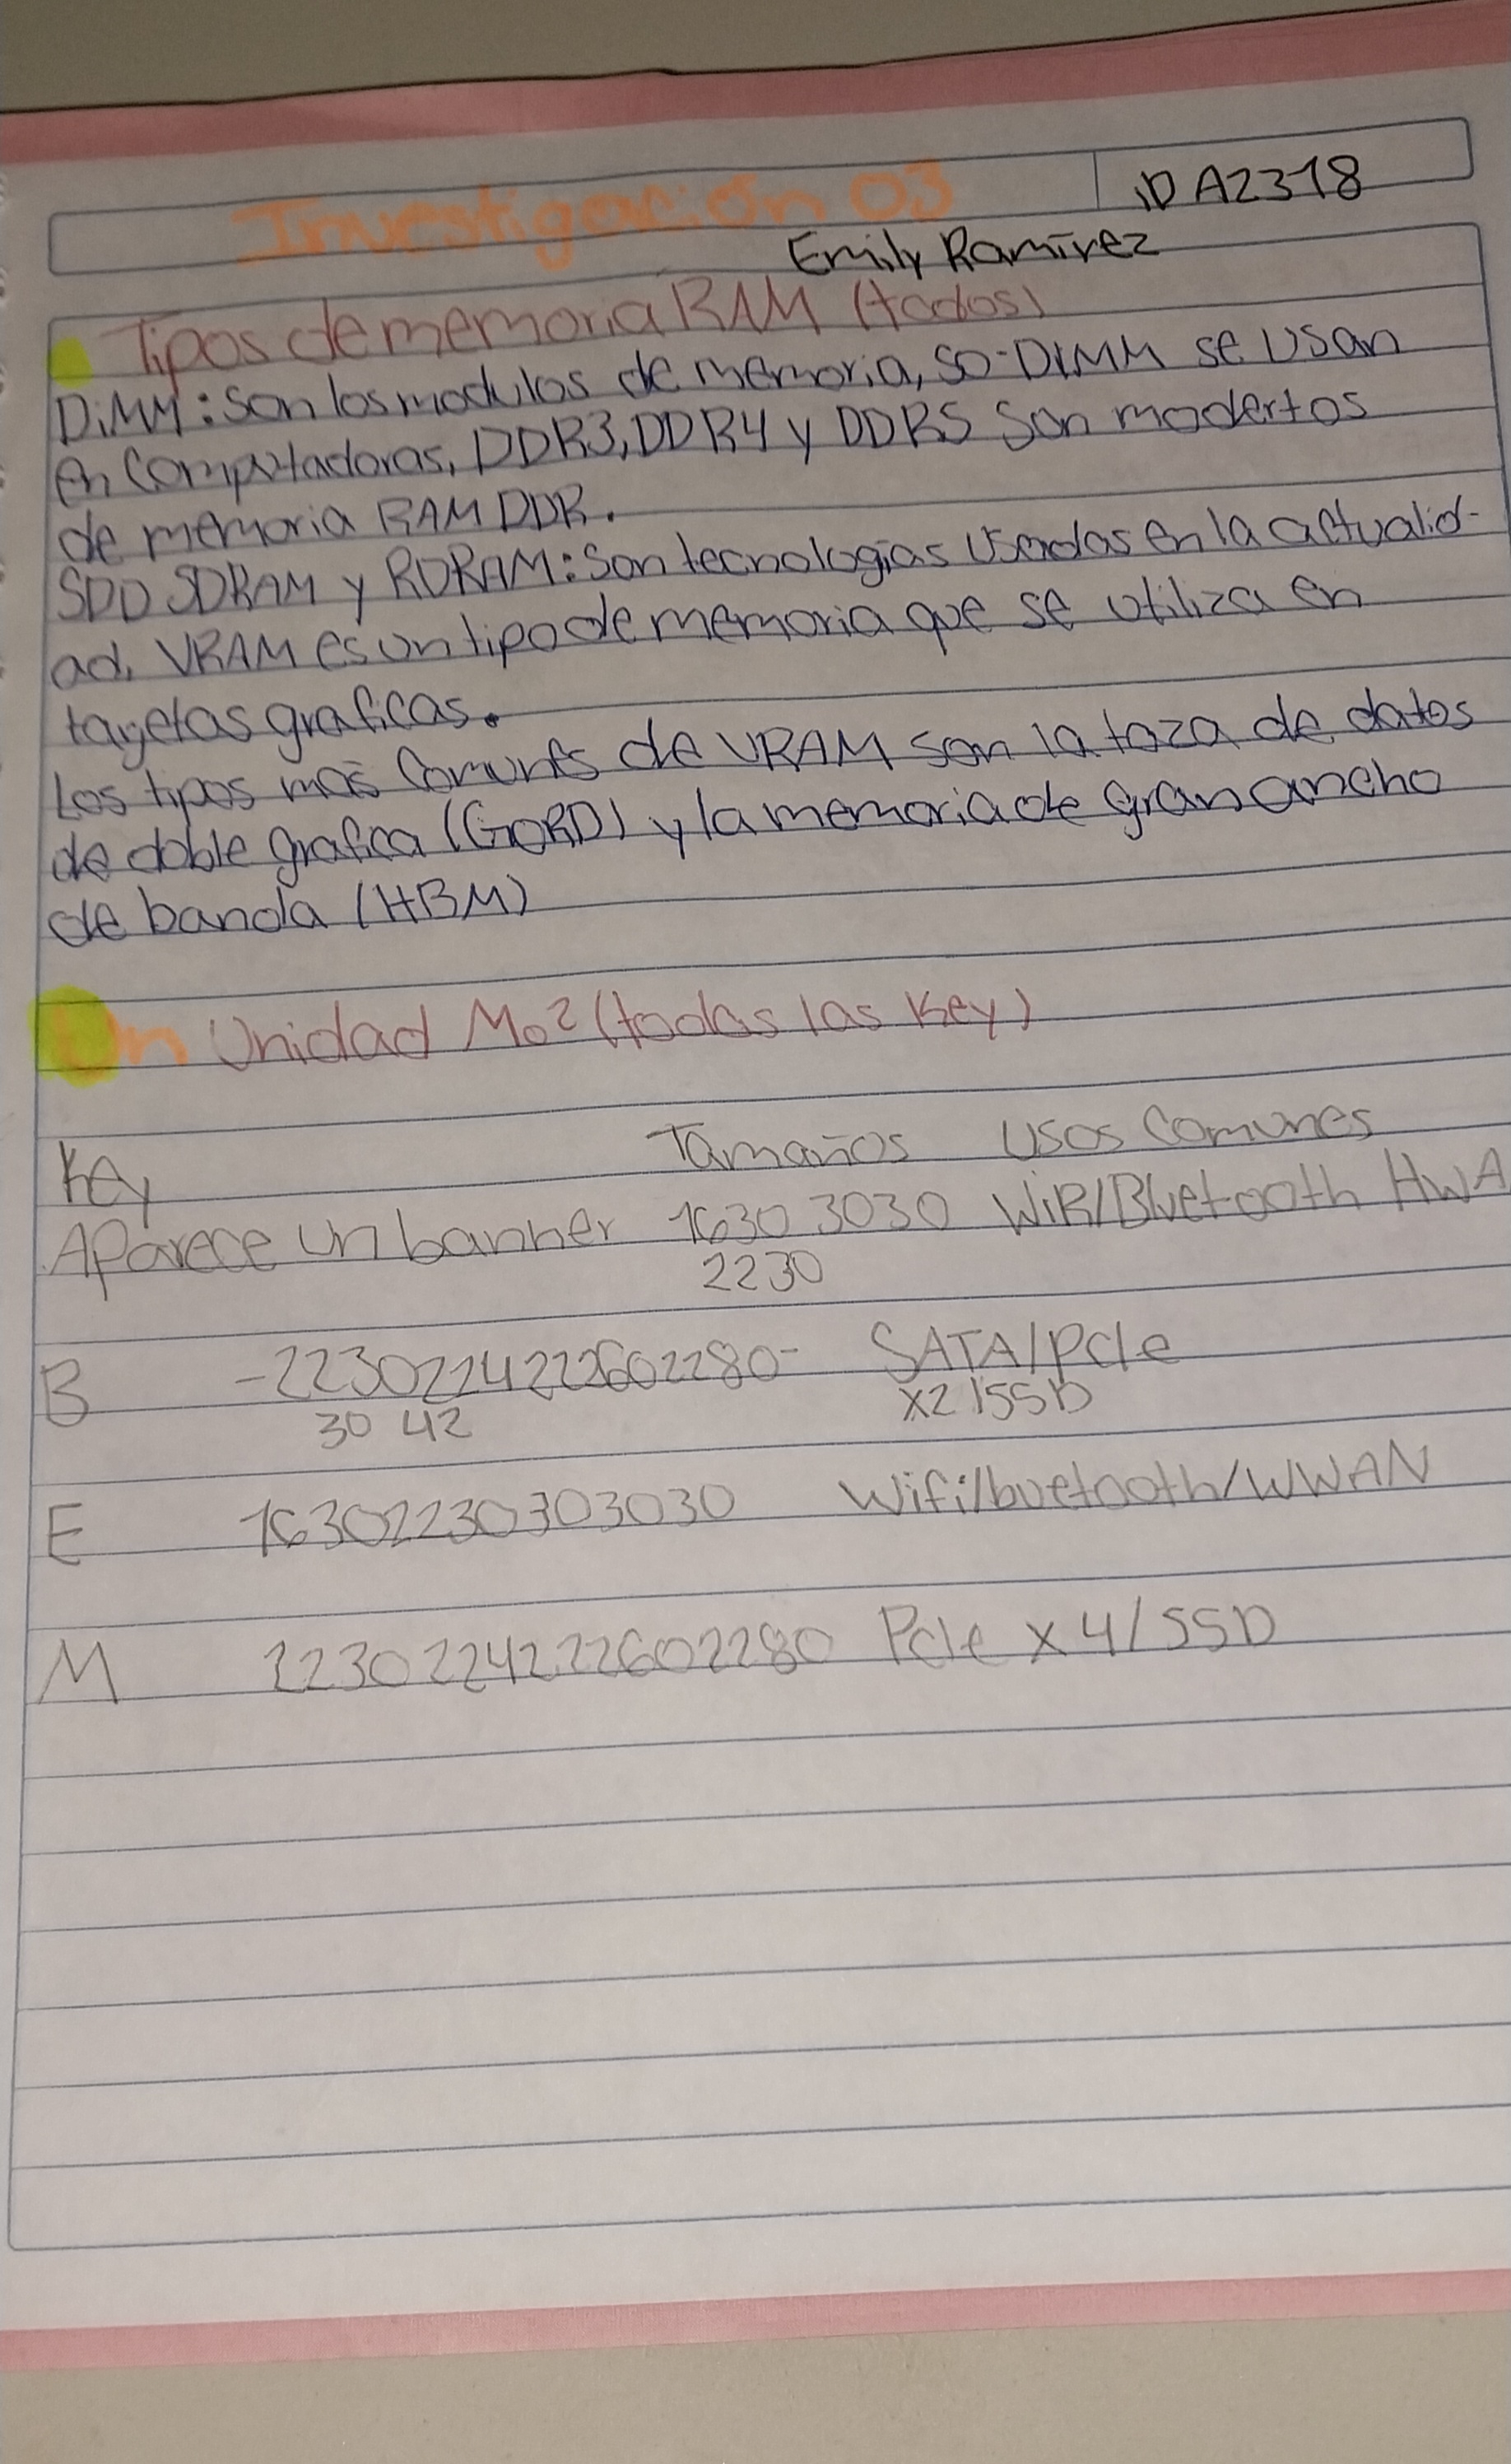 Investigación 03
ID A2318
Emily Ramírez
Tipos de memoria RAM (todos)
DiMM: Son los modulos de memoria, SO-DIMM se usan
en computadoras, DDR3, DDR4 y DDR5 Son modertos
de memoria RAM DDR.
SDD SDRAM y RDRAM: Son tecnologías usadas en la actualid-
ad, VRAM es un tipo de memoria que se utiliza en
tarjetas graficas.
Los tipos mas comunes de VRAM son la taza de datos
de doble grafica (GDRD) y la memoria de gran ancho
de banda (HBM)
Un Unidad M.2 (todas las Key)
Key Tamaños Usos Comunes
Aparece un banner 1630 3030 WiR/Bluetooth HWA
2230
B -2230224222602280- SATA/PcIe
30 42 X2 /SSD
E 16302230303030 Wifi/buetooth/WWAN
M 2230224222602280 PcIe x 4/SSD